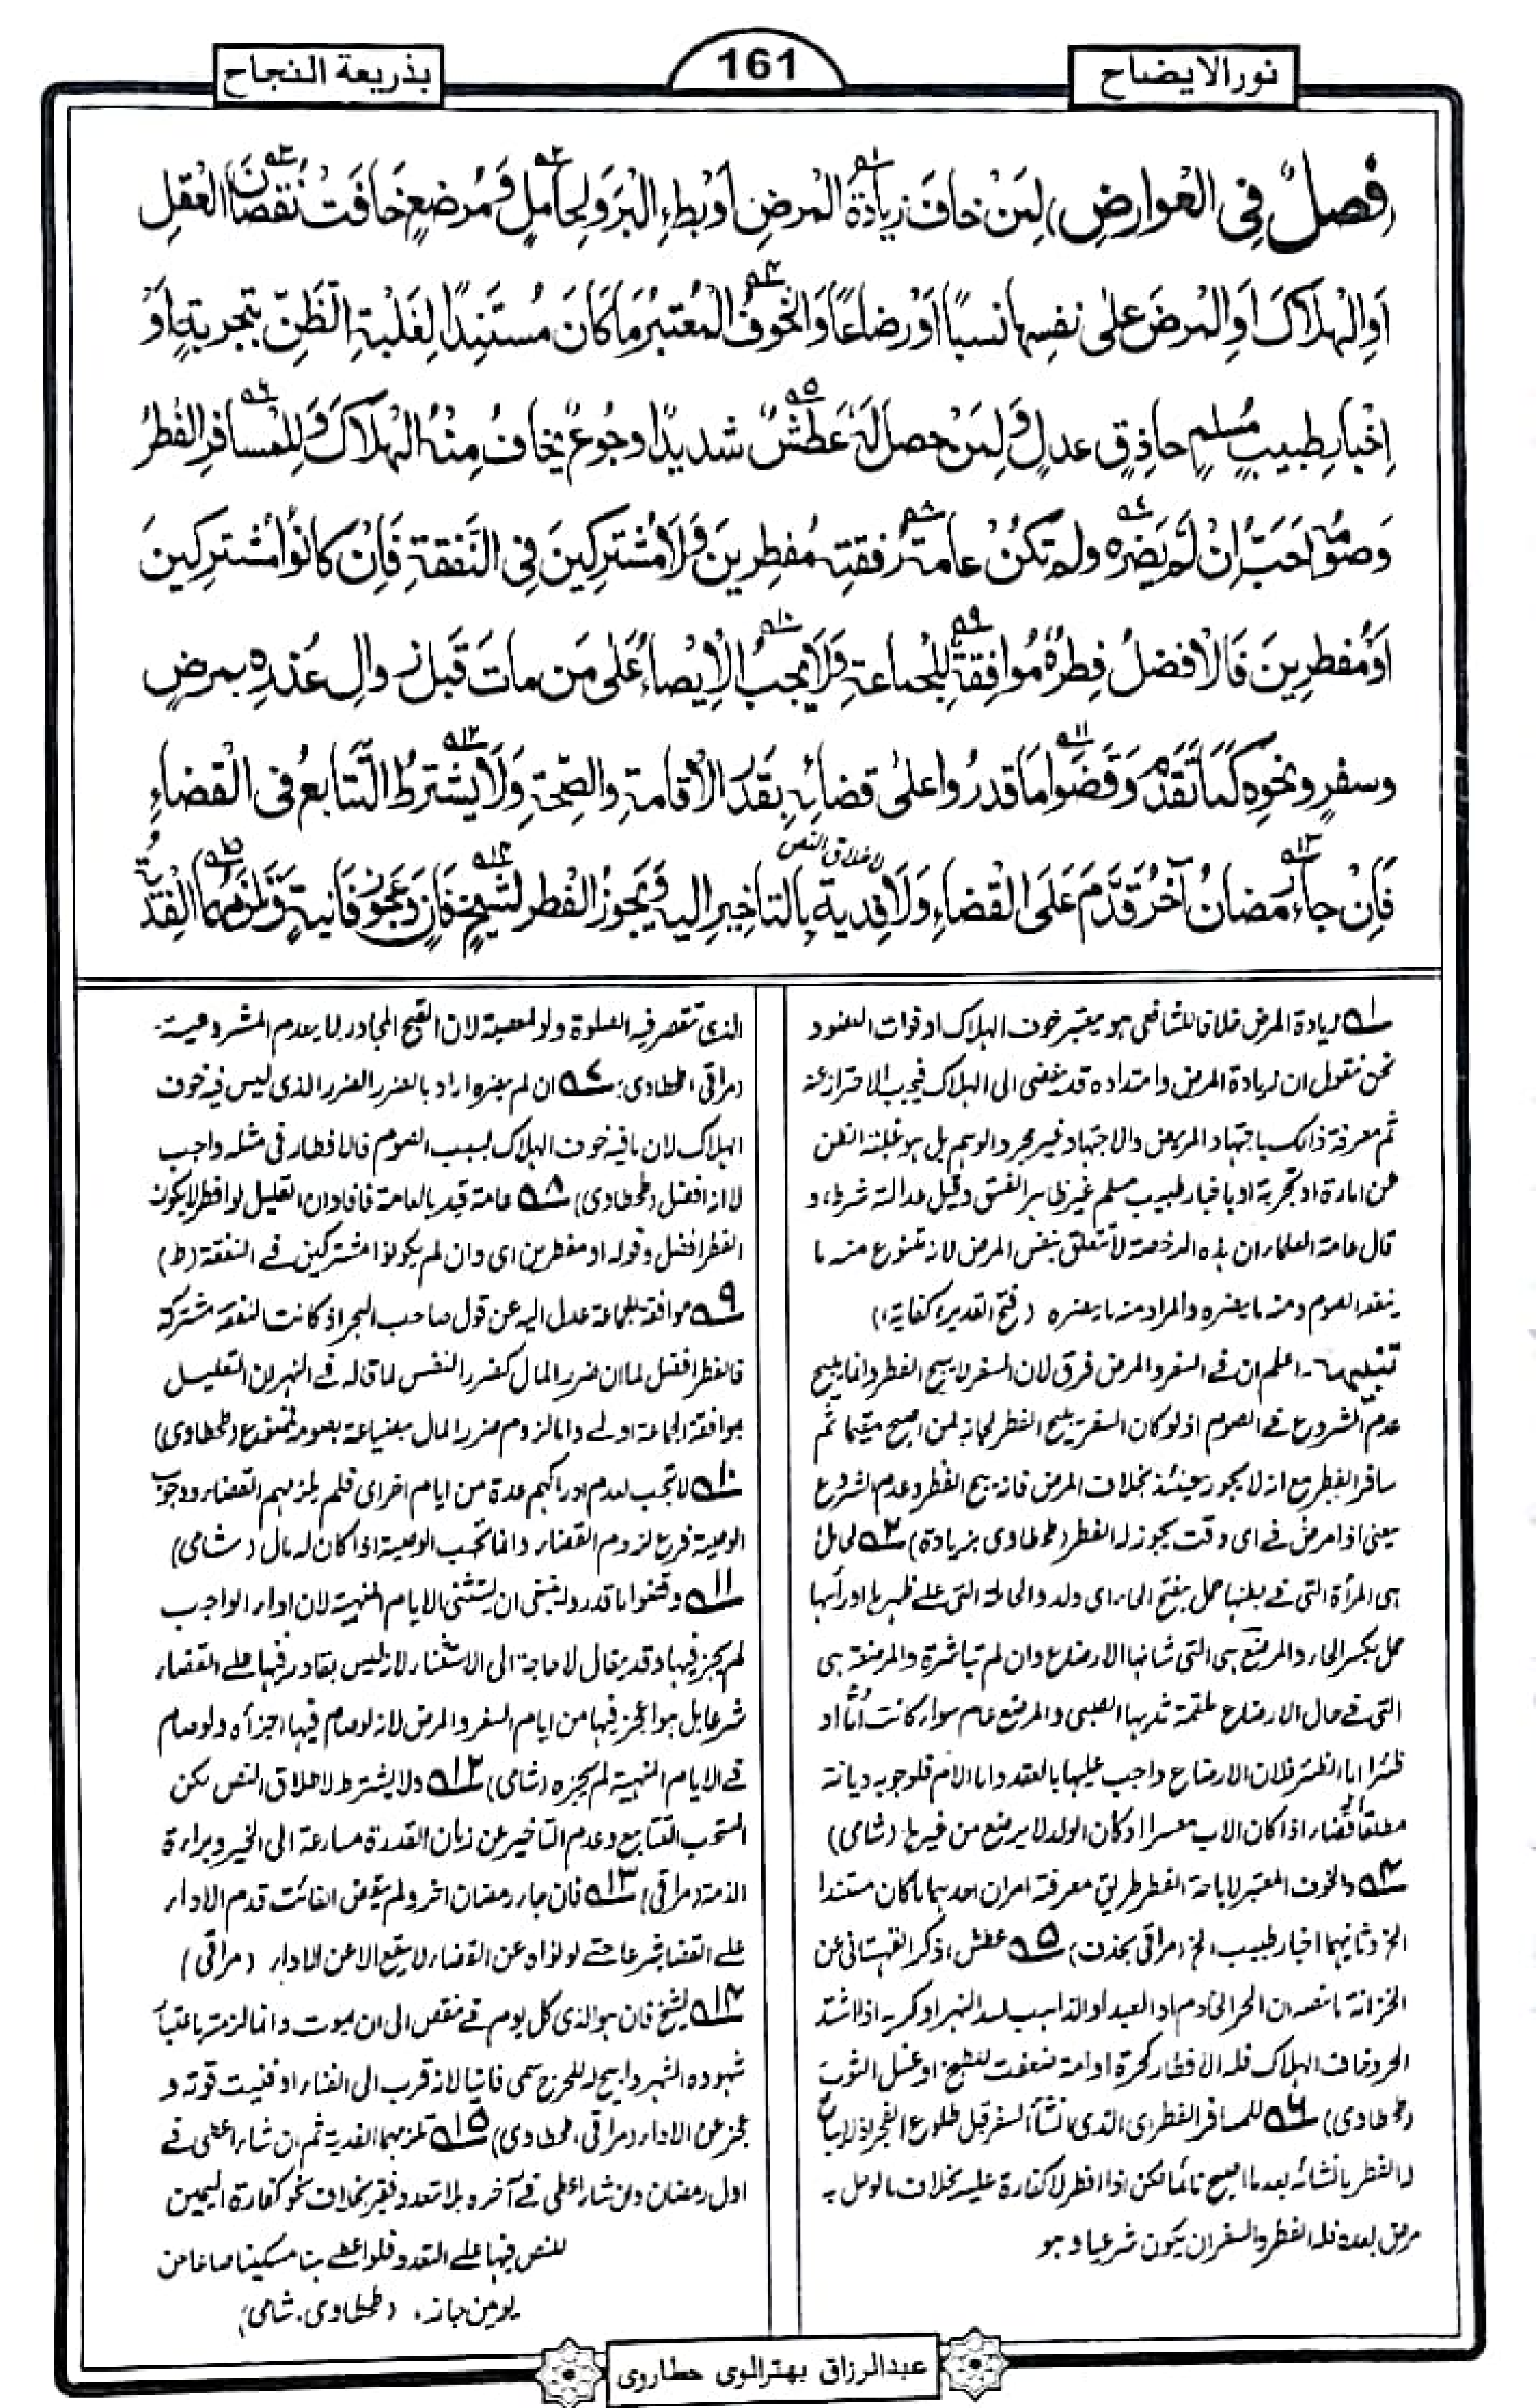 نور الايضاح
161
بذريعة النجاح
(فصلٌ فِى العوارضِ) لِمَنْ خافَ زيادةَ المرضِ اَوْبطءِ البرَوَلِحاملٍ وَّمُرضعٍ خَافَتْ نُقصَانَ العقلِ
اَوِالهلاكَ اَوِالمرضَ علٰى نفسِها نسبًا اَوْرِضاعًا وَالخوفُ المُعتبرُمَاكَانَ مُستَنِدًا لِغَلبةِ الظَّنِّ بِتجربةٍ اَوْ
اِخبارِطبيبٍ مُسلمٍ حاذِقٍ عدلٍ وَّلِمَنْ حصل لَهٗ عَطَشٌ شديدٌ اوجُوعٌ يخافُ مِنْهُ الهلاكَ وَلِلمُسافرِالفطرُ
وَصومُهٗ اَحَبُّ اِنْ لَّم يَضره ولم تكنْ عامةُ رُفقتِهٖ مُفطِرينَ وَلَامُشتَرِكينَ فِى النَّفقةِ فَاِنْ كانُوا مُشترِكينَ
اَوْمُفطِرِينَ فَالاَفضلُ فِطرُهٗ مُوافِقةً لِلجماعةِ وَلَايَجبُ الْاِيصاءُ عَلٰى مَن مات قَبلَ زوالِ عُذرِهٖ بمرضٍ
وسفرٍونحوِهٖ كَمَاتَقَدَّمَ وَقَضَوا مَاقدرُوا علٰى قضائِهٖ بِقَدَرِ الْاقامةِ والصِّحَّةِ وَلَايُشترطُ التَّتابعُ فى القضاءِ
لاطلاق النص
فَاِنْ جاءَ رمضانُ آخرُ قَدَّمَ عَلَى القضاءِ وَلَا فِديةَ بِالتاخيرِاليهِ وَيَجوزُ الفطرُ لشيخٍ فَانٍ وَّعَجُوزٍفَانيةٍ وَّتَلزمُهما الفِديةُ
١ زيادة المرض خلافا للشافعى هو يعتبر خوف الهلاك او فوات العضو
نحن نقول ان زيادة المرض وامتداده قد يفضى الى الهلاك فيجب الاحتراز عنه
ثم معرفة ذالك باجتهاد المريض والاجتهاد غير مجرد الوهم بل هو غلبة الظن
عن امارة او تجربة او باخبار طبيب مسلم غير ظاهر الفسق وقيل عدالته شرط، و
قال عامة العلماء ان هذه الرخصة لا تتعلق بنفس المرض لانه متنوع منه ما
ينفعه الصوم ومنه ما يضره والمراد منه ما يضره (فتح القدير، كفاية،)
تنبيه:- اعلم ان فى السفر والمرض فرق لان السفر لا يبيح الفطر وانما يبيح
عدم الشروع فى الصوم اذ لو كان السفر يبيح الفطر لجاز لمن اصبح مقيما ثم
سافر الفطر مع انه لا يجوز حينئذ بخلاف المرض فانه يبيح الفطر وعدم الشروع
يعنى اذا مرض فى اى وقت يجوز له الفطر (طحطاوى بزيادة) ٢ لحامل
هى المرأة التى فى بطنها حمل بفتح الحاء اى ولد والحاملة التى على ظهرها او رأسها
حمل بكسر الحاء والمرضع هى التى شانها الارضاع وان لم تباشره والمرضعة هى
التى فى حال الارضاع ملقمة ثديها الصبى والمرضع عام سواء كانت اُمًّا او
ظئرا اما الظئر فلان الارضاع واجب عليها بالعقد واما الام فلوجوبه ديانة
مطلقا وقضاء اذا كان الاب معسرا او كان الولد لا يرضع من غيرها (شامى)
٤ والخوف المعتبر لاباحة الفطر طريق معرفته امران احدهما ما كان مستندا
الخ وثانيهما اخبار طبيب الخ (مراقى بحذف) ٥ عطش ذكر القهستانى عن
الخزانة ما نصه ان الحر الخادم او العبد او الذاهب لسد النهر او كريه اذا اشتد
الحر وخاف الهلاك فله الافطار كحرة او امة ضعفت للطبخ او غسل الثوب
(طحطاوى) ٦ للمسافر الفطر اى الذى انشأ السفر قبل طلوع الفجر اذ لا يباح
له الفطر بانشائه بعد ما اصبح صائما لكن اذا افطر لا كفارة عليه بخلاف ما لو حل به
مرض بعده فله الفطر والسفر ان يكون شرعيا وهو
الذى تقصر فيه الصلوة ولو لمعصية لان القبح المجاور لا يعدم المشروعية-
(مراقى، طحطاوى) ٧ ان لم يضره اراد بالضرر الضرر الذى ليس فيه خوف
الهلاك لان ما فيه خوف الهلاك بسبب الصوم فالافطار فى مثله واجب
لا انه افضل (طحطاوى) ٨ عامة قيد بالعامة فافاد ان القليل لو افطر لا يكون
الفطر افضل وقوله او مفطرين اى وان لم يكونوا مشتركين فى النفقة (ط)
٩ موافقة للجماعة عدل اليه عن قول صاحب البحر اذ كانت النفقة مشتركة
فالفطر افضل لما ان ضرر المال كضرر النفس لما قاله فى النهر ان التعليل
بموافقة الجماعة اولى واما لزوم ضرر المال بضياعه بصومه فممنوع (طحطاوى)
١٠ لا تجب لعدم ادراكهم عدة من ايام اخر اى فلم يلزمهم القضاء ووجوب
الوصية فرع لزوم القضاء وانما تجب الوصية اذا كان له مال (شامى)
١١ وقضوا ما قدروا ينبغى ان يستثنى الايام المنهية لان اداء الواجب
لم يجز فيها وقد يقال لا حاجة الى الاستثناء لانه ليس بقادر فيها على القضاء
شرعا بل هو اعجز فيها من ايام السفر والمرض لانه لو صام فيها اجزأه ولو صام
فى الايام المنهية لم يجزه (شامى) ١٢ ولا يشترط لاطلاق النص لكن
المستحب التتابع وعدم التاخير عن زمان القدرة مسارعة الى الخير وبراءة
الذمة (مراقى) ١٣ فان جاء رمضان اخر ولم يقض الفائت قدم الاداء
على القضا شرعا حتى لو نواه عن القضاء لا يقع الا عن الاداء (مراقى)
١٤ لشيخ فان هو الذى كل يوم فى نقص الى ان يموت وانما لزمته باعتبار
شهوده الشهر وابيح له للحرج سمى فانيا لانه قرب الى الفناء او فنيت قوته و
عجز عن الاداء (مراقى، طحطاوى) ١٥ تلزمهما الفدية ثم ان شاء اعطى فى
اول رمضان وان شاء اعطى فى آخره وبلا تعدد فقير بخلاف نحو كفارة اليمين
للنص فيها على التعدد فلو اعطى هنا مسكينا صاعا من
يومين جاز، (طحطاوى، شامى)
عبدالرزاق بهترالوی حطاروی